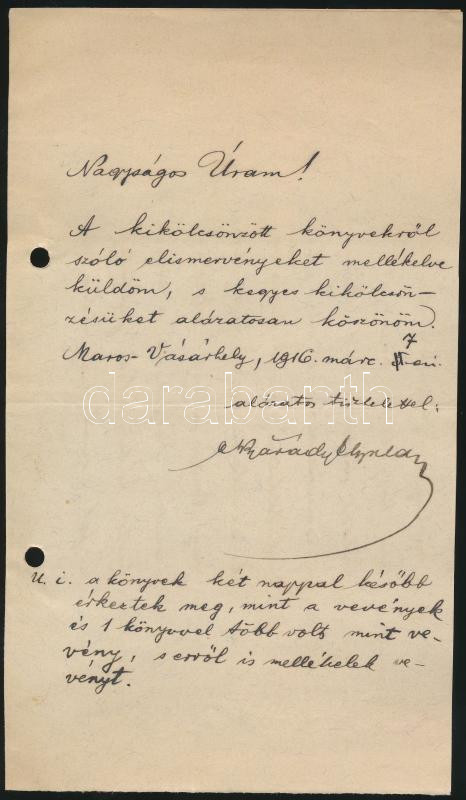 Nagyságos Úram!
A kikölcsönzött könyvekről
szóló elismervényeket mellékelve
küldöm, s kegyes kikölcsön-
zésüket alázatosan köszönöm.
Maros-Vásárhely, 1916. márc. 7-én.
darabanth
alázatos tisztelettel:
Nyárády
U. i. a könyvek két nappal később
érkeztek meg, mint a vevények
és 1 könyvvel több volt, mint ve-
vény, s erről is mellékelek ve-
vényt.